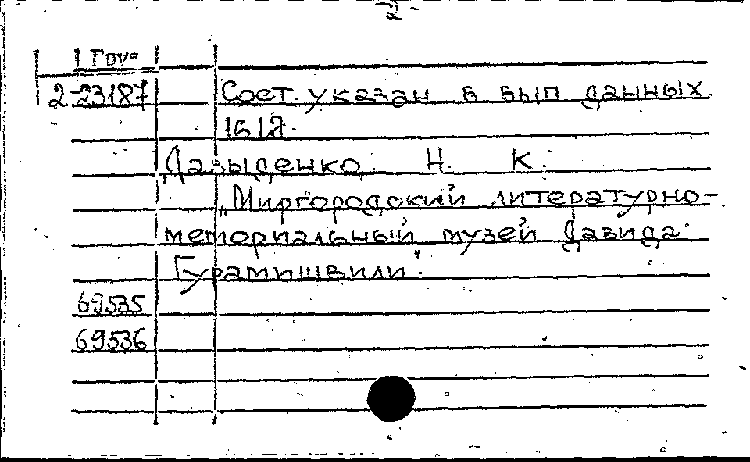 -2-
1 Гру-
2-23187 Сост. указан в вып данных
161Я.
Давыденко Н. К.
„Миргородский литературно-
мемориальный музей Давида
Гурамишвили"
69535
69536